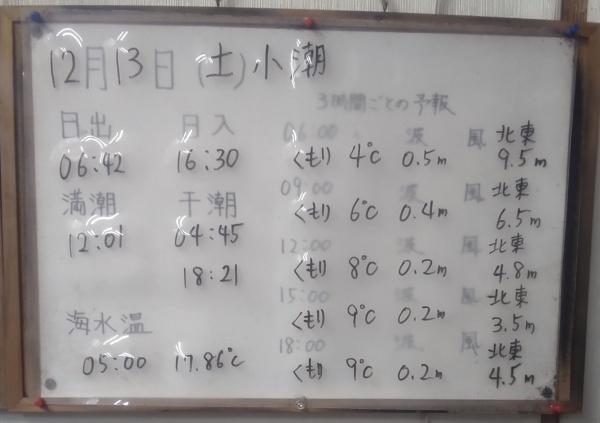 12月13日(土)小潮
3時間ごとの予報
日出 日入
06:42 16:30
満潮 干潮
12:01 04:45
18:21
海水温
05:00 17.86℃
06:00 波 風 北東
くもり 4℃ 0.5m 9.5m
09:00 波 風 北東
くもり 6℃ 0.4m 6.5m
12:00 波 風 北東
くもり 8℃ 0.2m 4.8m
15:00 波 風 北東
くもり 9℃ 0.2m 3.5m
18:00 波 風 北東
くもり 9℃ 0.2m 4.5m